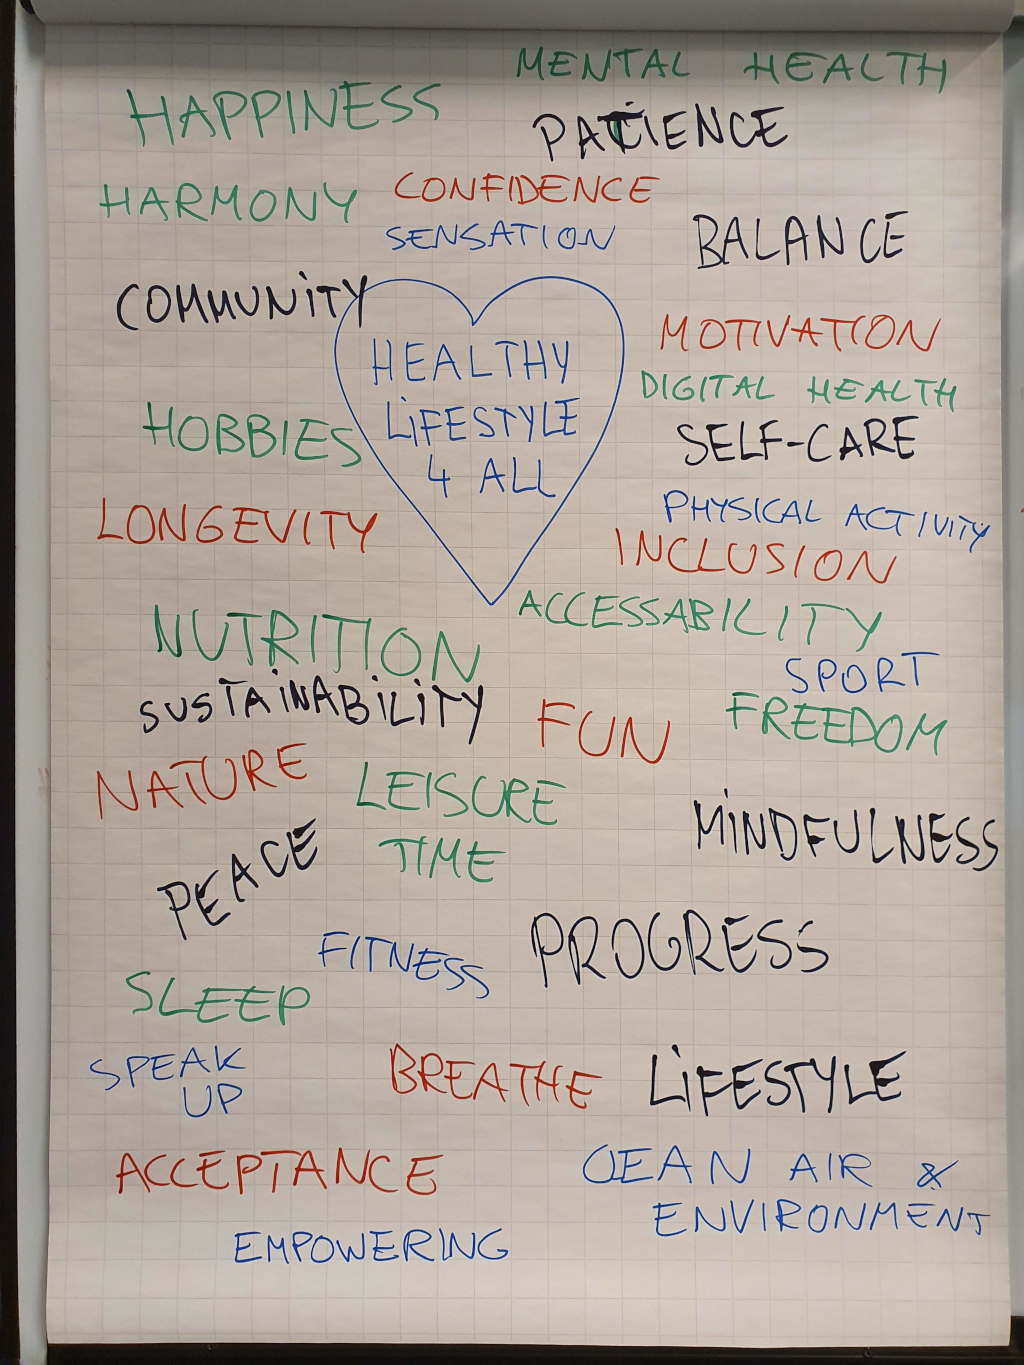 MENTAL HEALTH
HAPPINESS
PATIENCE
HARMONY
CONFIDENCE
SENSATION
BALANCE
COMMUNiTY
HEALTHY
LiFESTYLE
4 ALL
MOTIVATION
DIGITAL HEALTH
HOBBIES
SELF-CARE
LONGEVITY
PHYSICAL ACTIVITY
INCLUSION
ACCESSABILITY
NUTRITION
SPORT
SUSTAiNABiLiTY
FUN
FREEDOM
NATURE
LEISURE
TIME
MiNDFULNESS
PEACE
FITNESS
PROGRESS
SLEEP
SPEAK
UP
BREATHE
LiFESTYLE
ACCEPTANCE
CLEAN AIR &
ENVIRONMENT
EMPOWERING